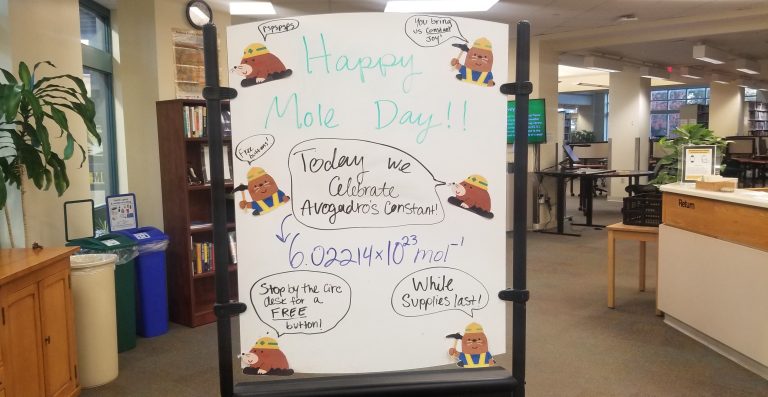 pspspsps
You bring
us constant
joy!
Happy
Mole Day!!
Free
buttons!
Today we
Celebrate
Avogadro's Constant!
6.02214×10²³ mol⁻¹
Stop by the circ
desk for a
FREE
button!
While
Supplies last!
Return